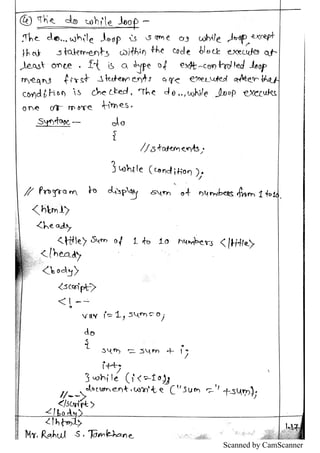 ④ The do while loop –
The do...while loop is same as while loop except
that statements within the code block executes at-
least once. It is a type of exit-controlled loop
means first statements are executed after that
condition is checked. The do..while loop executes
one or more times.
Syntax –
do
{
//statements;
}while (condition);
// Program to display sum of numbers from 1 to 10.
<html>
<head>
<title> Sum of 1 to 10 numbers </title>
</head>
<body>
<script>
<!--
var i=1, sum=0;
do
{
sum = sum + i;
i++;
}while (i<=10);
document.write ("Sum =" +sum);
//-->
</script>
</body>
</html>
1.17
Mr. Rahul S. Tamkhane
Scanned by CamScanner